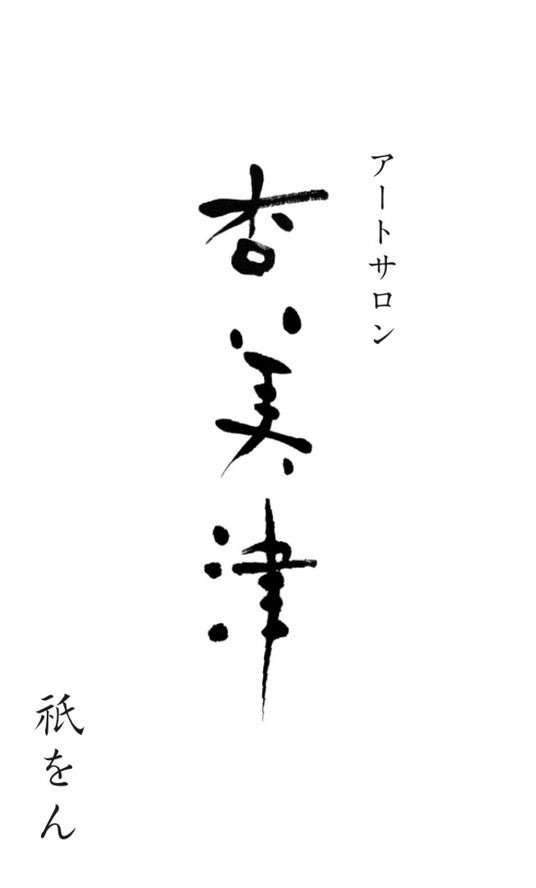 アートサロン
杏美津
祇をん